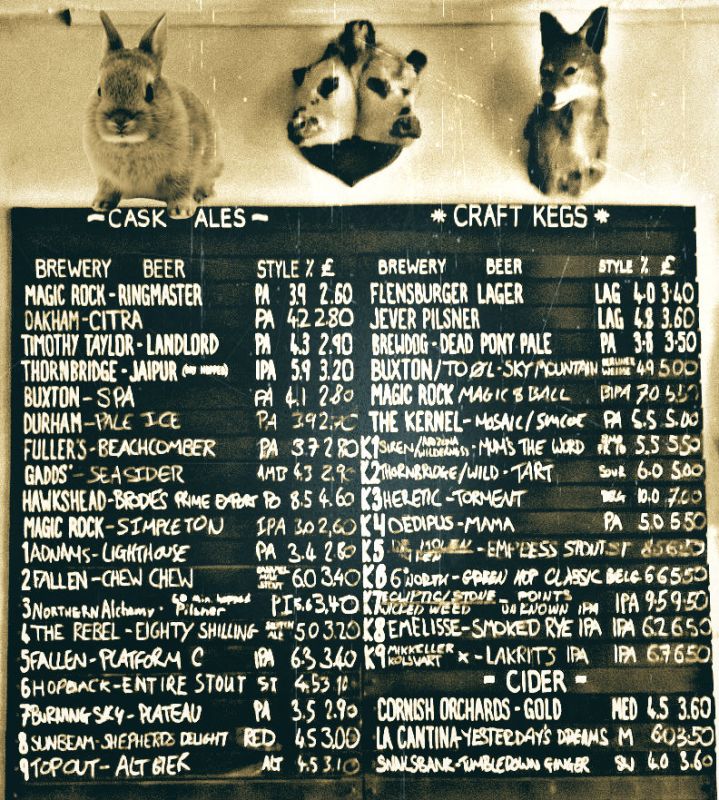 ~ CASK ALES ~
BREWERY BEER STYLE % £
MAGIC ROCK - RINGMASTER PA 3.9 2.60
OAKHAM - CITRA PA 4.2 2.80
TIMOTHY TAYLOR - LANDLORD PA 4.3 2.90
THORNBRIDGE - JAIPUR IPA 5.9 3.20
BUXTON - SPA PA 4.1 2.80
DURHAM - PALE ICE PA 3.9
FULLER'S - BEACHCOMBER PA 3.7 2.80
GADDS' - SEASIDER AMB 4.3 2.90
HAWKSHEAD - BRODIES PRIME EXPORT PO 8.5 4.60
MAGIC ROCK - SIMPLETON IPA 3.0 2.60
1 ADNAMS - LIGHTHOUSE PA 3.4 2.80
2 FALLEN - CHEW CHEW STOUT 6.0 3.40
3 NORTHERN ALCHEMY - 60 min hopped Pilsner PI 5.6 3.40
4 THE REBEL - EIGHTY SHILLING ALE 5.0 3.20
5 FALLEN - PLATFORM C IPA 6.3 3.40
6 HOPBACK - ENTIRE STOUT ST 4.5 3.10
7 BURNING SKY - PLATEAU PA 3.5 2.90
8 SUNBEAM - SHEPHERDS DELIGHT RED 4.5 3.00
9 TOP OUT - ALT BIER ALT 4.5 3.10
* CRAFT KEGS *
BREWERY BEER STYLE % £
FLENSBURGER LAGER LAG 4.0 3.40
JEVER PILSNER LAG 4.8 3.60
BREWDOG - DEAD PONY PALE PA 3.8 3.50
BUXTON/TO ØL - SKY MOUNTAIN BERLINER WEISSE 4.9 5.00
MAGIC ROCK MAGIC 8 BALL BIPA 7.0 5.50
THE KERNEL - MOSAIC/SIMCOE PA 5.5 5.00
K1 SIREN/ARIZONA WILDERNESS - MUM'S THE WORD 5.5 5.50
K2 THORNBRIDGE/WILD - TART SOUR 6.0 5.00
K3 HERETIC - TORMENT BLG 10.0 7.00
K4 OEDIPUS - MAMA PA 5.0 5.50
K5 DE MOLEN - EMPRESS STOUT ST
K6 6° NORTH - GREEN HOP CLASSIC BELG 6.6 5.50
K7 ECLIPTIC/STONE WICKED WEED - POINTS UNKNOWN IPA IPA 9.5 9.50
K8 EMELISSE - SMOKED RYE IPA IPA 6.2 6.50
K9 MIKKELLER KOLSVART x - LAKRITS IPA IPA 6.7 6.50
- CIDER -
CORNISH ORCHARDS - GOLD MED 4.5 3.60
LA CANTINA - YESTERDAY'S DREAMS M 6.0 3.50
SNAILSBANK - TUMBLEDOWN GINGER SW 4.0 3.60